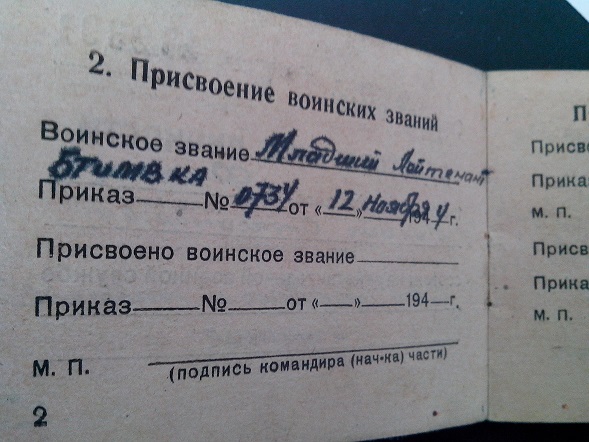 2. Присвоение воинских званий
Воинское звание Младший Лойтенант
Приказ № 0734 от «12» ноября 1944 г.
Присвоено воинское звание
Приказ № от « » 194 г.
М. П.
(подпись командира (нач-ка) части)
2
П
Присво
Прика
М. П.
Присв
Прика
М. П.